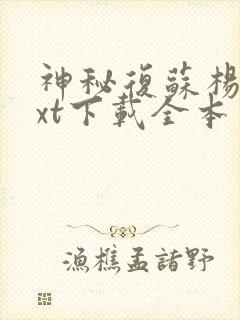 神秘復蘇楊
xt下載全本
漁樵孟諸野